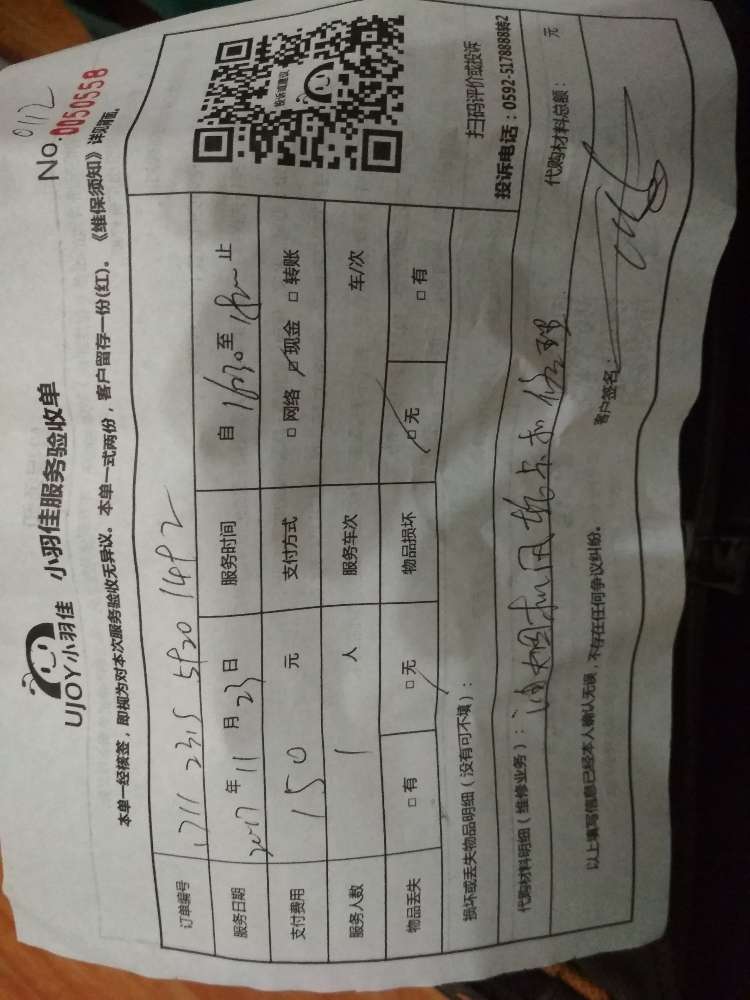 UJOY小羽佳 小羽佳服务验收单
0112
No.0050558
本单一经核签，即视为对本次服务验收无异议。本单一式两份，客户留存一份(红)。《维保须知》详见背面。
订单编号 1711 2315 5920 1492
服务日期 2017年11月23日 服务时间 自1630至 止
支付费用 150元 支付方式 □网络 □现金 □转账
服务人数 1人 服务车次 车/次
物品丢失 □有 □无 物品损坏 □无 □有
投诉或建议
扫码评价或投诉
投诉电话：0592-5178888转2
损坏或丢失物品明细（没有可不填）：
代购材料明细（维修业务）：油烟机 修理
代购材料总额： 元
以上填写信息已经本人确认无误，不存在任何争议纠纷。
客户签名：